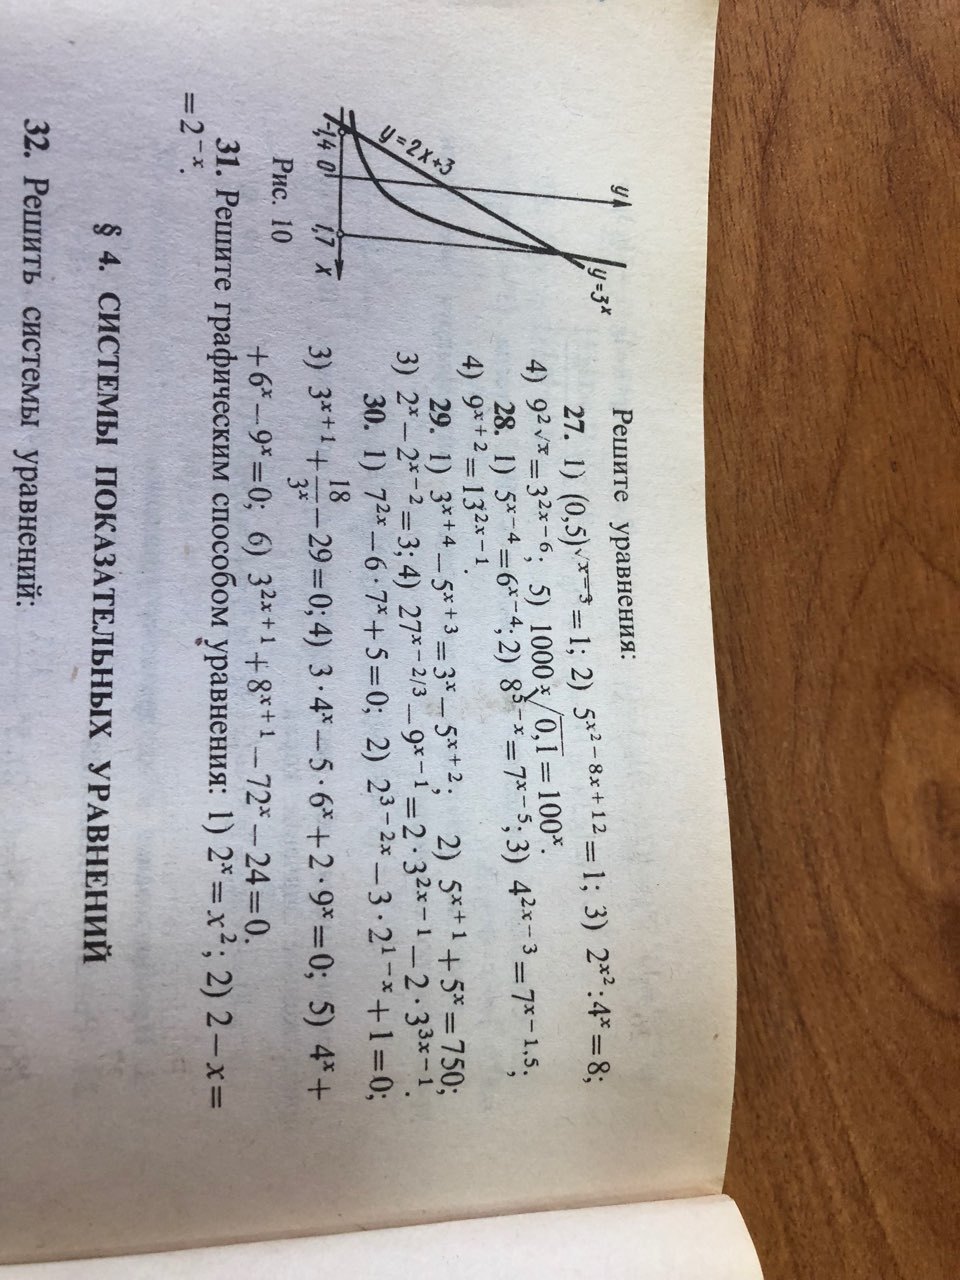 Решите уравнения:
27. 1) (0,5)^{√x−3} = 1; 2) 5^{x²−8x+12} = 1; 3) 2^{x²} : 4^x = 8;
4) 9^{2√x} = 3^{2x−6}; 5) 1000 \sqrt[x]{0,1} = 100^x.
28. 1) 5^{x−4} = 6^{x−4}; 2) 8^{5−x} = 7^{x−5}; 3) 4^{2x−3} = 7^{x−1,5};
4) 9^{x+2} = 13^{2x−1}.
29. 1) 3^{x+4} − 5^{x+3} = 3^x − 5^{x+2}; 2) 5^{x+1} + 5^x = 750;
3) 2^x − 2^{x−2} = 3; 4) 27^{x−2/3} − 9^{x−1} = 2·3^{2x−1} − 2·3^{3x−1}.
30. 1) 7^{2x} − 6·7^x + 5 = 0; 2) 2^{3−2x} − 3·2^{1−x} + 1 = 0;
3) 3^{x+1} + 18/3^x − 29 = 0; 4) 3·4^x − 5·6^x + 2·9^x = 0; 5) 4^x +
+ 6^x − 9^x = 0; 6) 3^{2x+1} + 8^{x+1} − 72^x − 24 = 0.
y
y=2x+3
y=3^x
-1,4 0 1,7 x
Рис. 10
31. Решите графическим способом уравнения: 1) 2^x = x²; 2) 2 − x =
= 2^{−x}.
§ 4. СИСТЕМЫ ПОКАЗАТЕЛЬНЫХ УРАВНЕНИЙ
32. Решить системы уравнений: